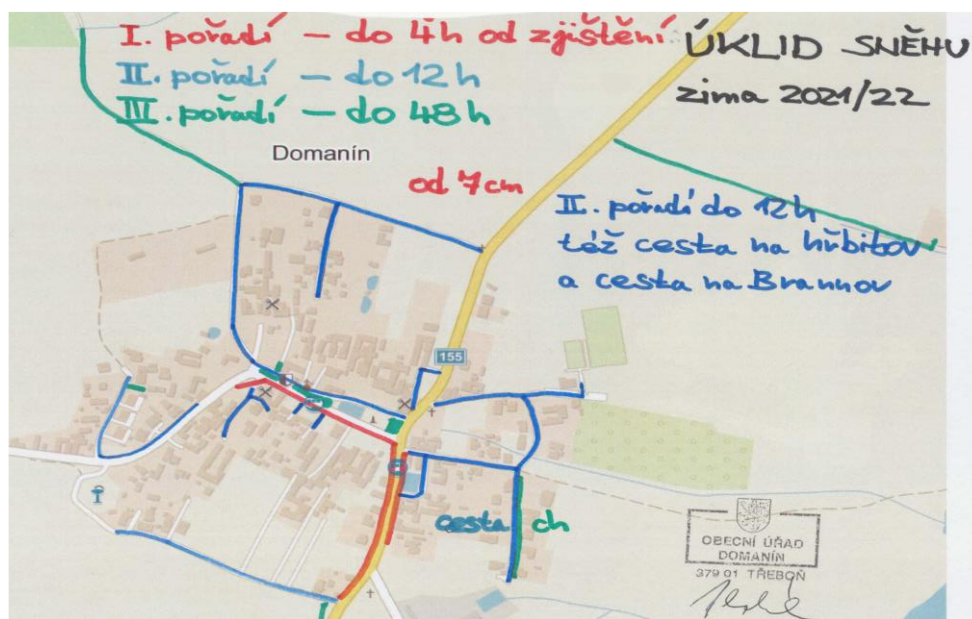 I. pořadí – do 4h od zjištění
II. pořadí – do 12h
III. pořadí – do 48h
ÚKLID SNĚHU
zima 2021/22
Domanín
od 7cm
II. pořadí do 12h
též cesta na hřbitov
a cesta na Brannov
155
cesta ch
OBECNÍ ÚŘAD
DOMANÍN
379 01 TŘEBOŇ